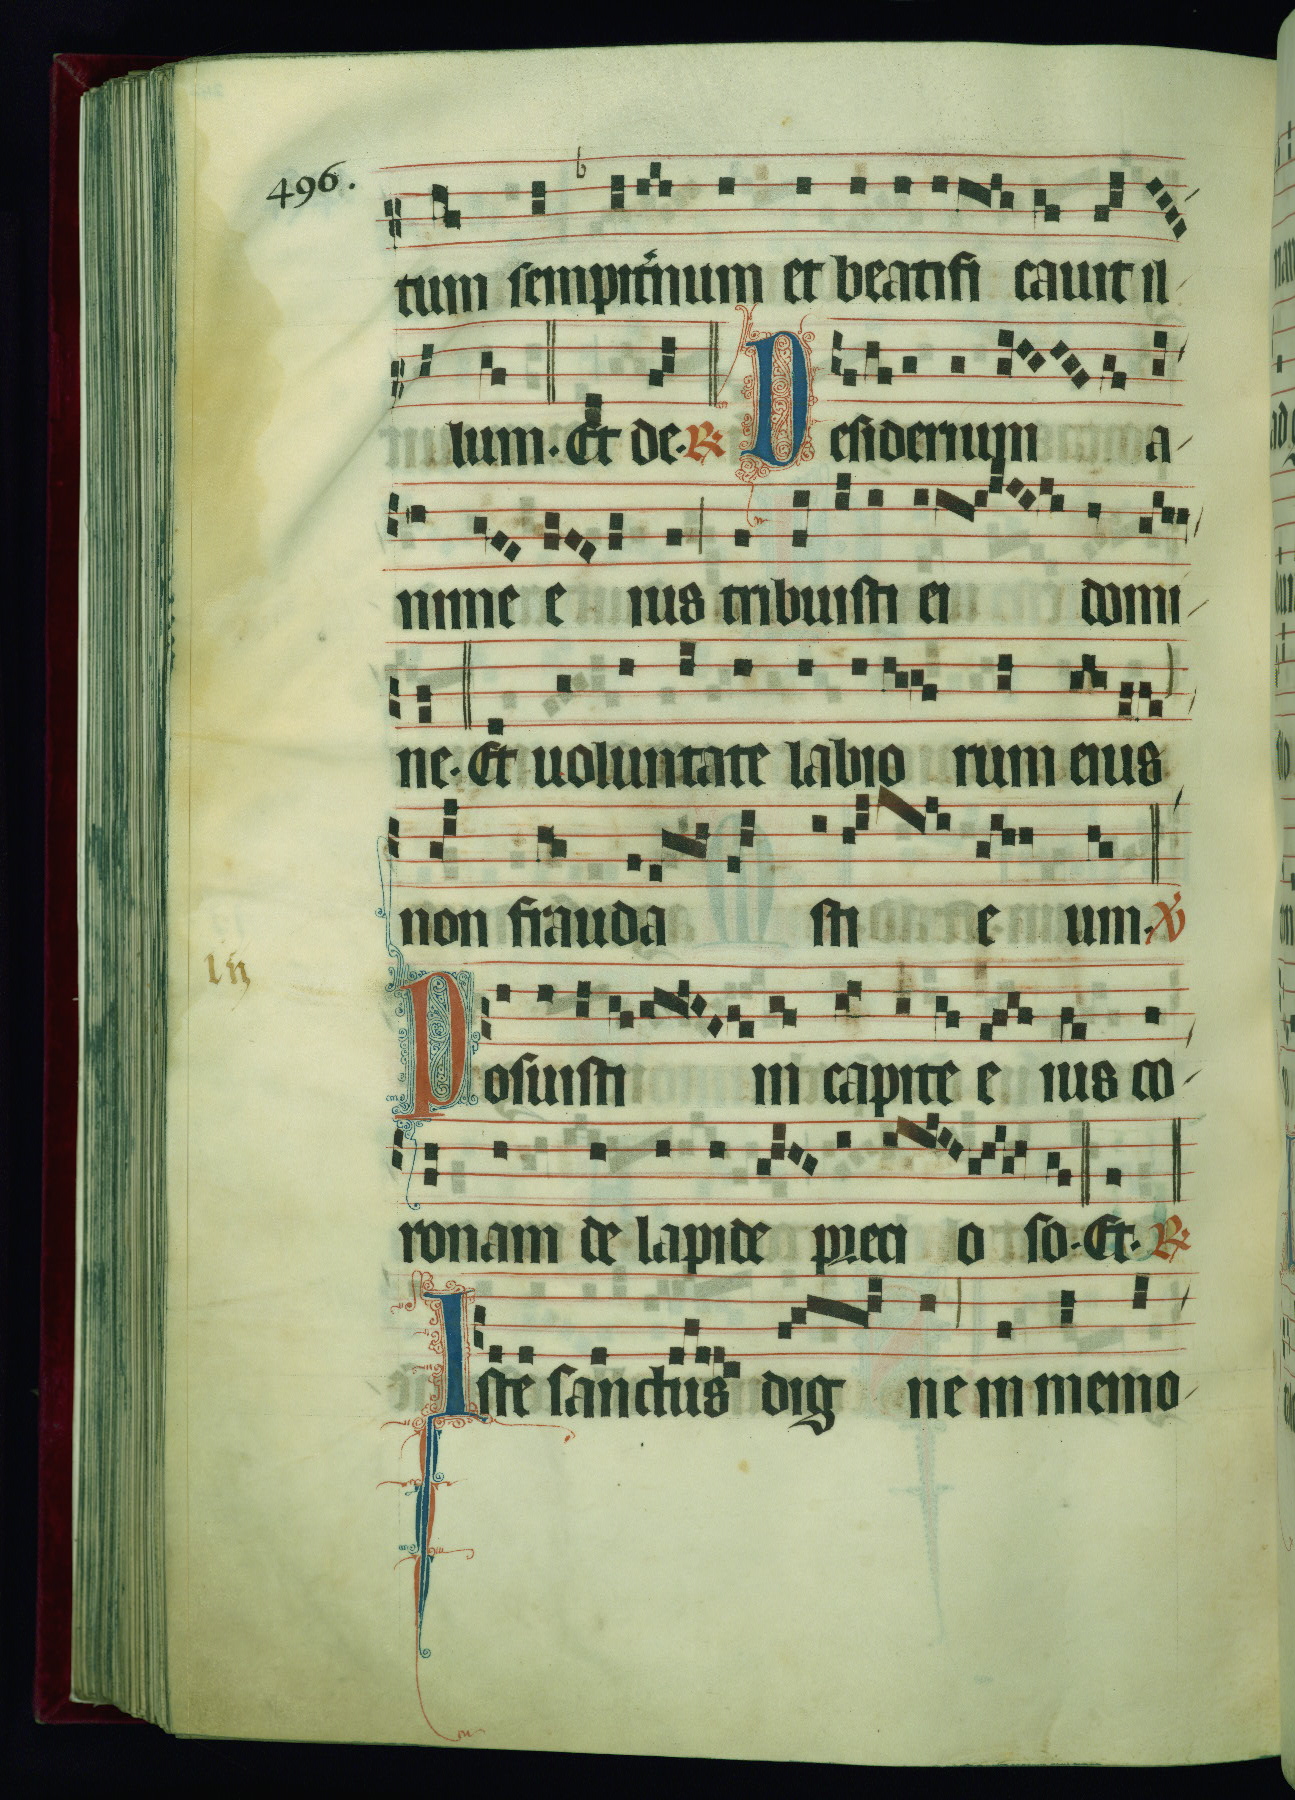 496.
tum sempit̄num et beatifi cauit il
lum. Et de. ℟ Desiderium a
nime e ius tribuisti ei domi
ne. Et uoluntate labio rum eius
non frauda sti e um. ℣
Posuisti in capite e ius co
ronam de lapide preci o so. Et. ℟
Iste sanctus dig ne in memo